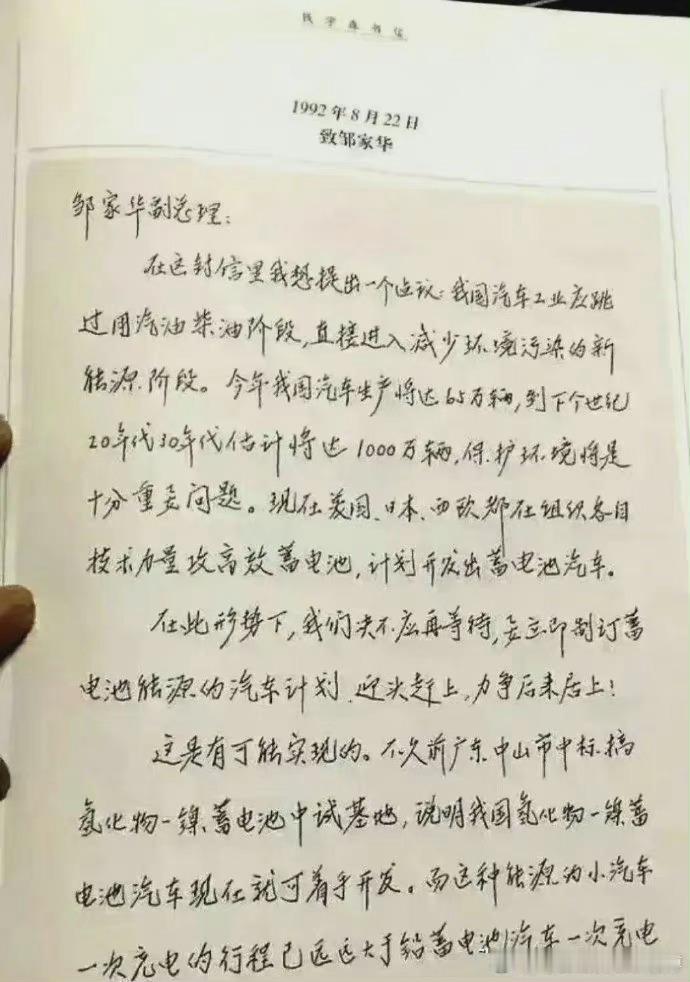 钱学森书信
1992年8月22日
致邹家华
邹家华副总理：
在这封信里我想提出一个建议：我国汽车工业应跳
过用汽油柴油阶段，直接进入减少环境污染的新
能源阶段。今年我国汽车生产将达65万辆，到下个世纪
20年代30年代估计将达1000万辆，保护环境将是
十分重要问题。现在美国、日本、西欧都在组织各自
技术力量攻高效蓄电池，计划开发出蓄电池汽车。
在此形势下，我们决不应再等待，要立即制订蓄
电池能源的汽车计划，迎头赶上，力争后来居上！
这是有可能实现的。不久前广东中山市中标搞
氢化物—镍蓄电池中试基地，说明我国氢化物—镍蓄
电池汽车现在就可着手开发。而这种能源为小汽车
一次充电的行程已远远大于铅蓄电池汽车一次充电